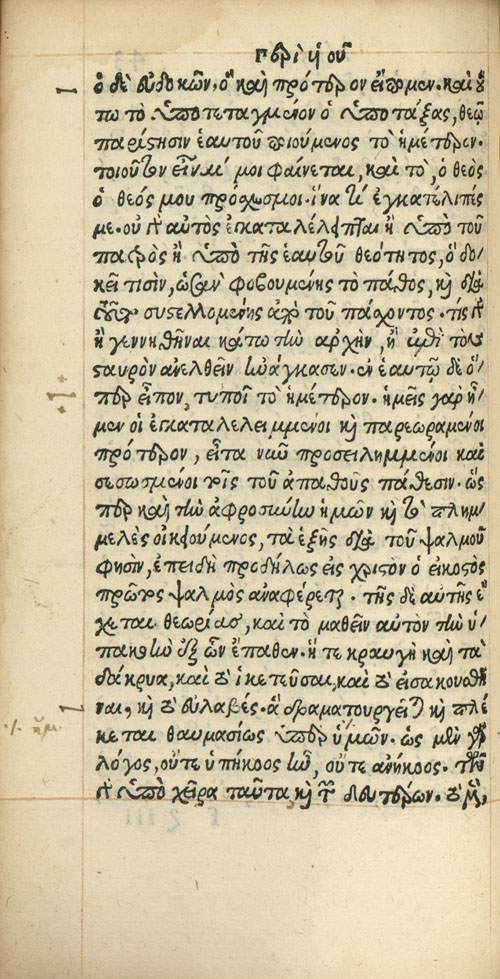 περὶ υἱοῦ
ὁ δὲ εὐδοκῶν. ὃ καὶ πρότερον εἴπομεν. καὶ οὕ
τω τὸ ὑποτεταγμένον ὁ ὑποτάξας, θεῷ
παρίστησιν ἑαυτοῦ ποιούμενος τὸ ἡμέτερον.
τοιοῦτον εἶναί μοι φαίνεται, καὶ τὸ, ὁ θεὸς
ὁ θεός μου πρόσχες μοι. ἵνα τί ἐγκατέλιπές
με. οὐ γὰρ αὐτὸς ἐγκαταλέλειπται ἢ ὑπὸ τοῦ
πατρὸς ἢ ὑπὸ τῆς ἑαυτοῦ θεότητος, ὃ δο-
κεῖ τισὶν, ὡς ἂν φοβουμένης τὸ πάθος, καὶ διὰ
τοῦτο συστελλομένης ἀπὸ τοῦ πάσχοντος. τίς γὰρ
ἢ γεννηθῆναι κάτω τὴν ἀρχὴν, ἢ ἐπὶ τὸν
σταυρὸν ἀνελθεῖν ἠνάγκασεν. ἐν ἑαυτῷ δὲ ὅ-
περ εἶπον, τυποῖ τὸ ἡμέτερον. ἡμεῖς γὰρ ἦ-
μεν οἱ ἐγκαταλελειμμένοι καὶ παρεωραμένοι
πρότερον, εἶτα νῦν προσειλημμένοι καὶ
σεσωσμένοι τοῖς τοῦ ἀπαθοῦς πάθεσιν. ὥσ
περ καὶ τὴν ἀφροσύνην ἡμῶν καὶ τὸ πλημ-
μελὲς οἰκειούμενος, τὰ ἑξῆς διὰ τοῦ ψαλμοῦ
φησὶν, ἐπειδὴ προδήλως εἰς χριστὸν ὁ εἰκοστὸς
πρῶτος ψαλμὸς ἀναφέρεται. τῆς δὲ αὐτῆς ἔ-
χεται θεωρίας, καὶ τὸ μαθεῖν αὐτὸν τὴν ὑ-
πακοὴν ἐξ ὧν ἔπαθεν. ἥ τε κραυγὴ καὶ τὰ
δάκρυα, καὶ τὸ ἱκετεῦσαι, καὶ τὸ εἰσακουσθῆ
ναι, καὶ τὸ εὐλαβές. ἃ δραματουργεῖται καὶ πλέ
κεται θαυμασίως ὑπὲρ ὑμῶν. ὡς μὲν γὰρ
λόγος, οὔτε ὑπήκοος ἦν, οὔτε ἀνήκοος. τῶν
γὰρ ὑπὸ χεῖρα ταῦτα, καὶ τῶν δευτέρων. τὸ μὲν,
./. ἡμ.